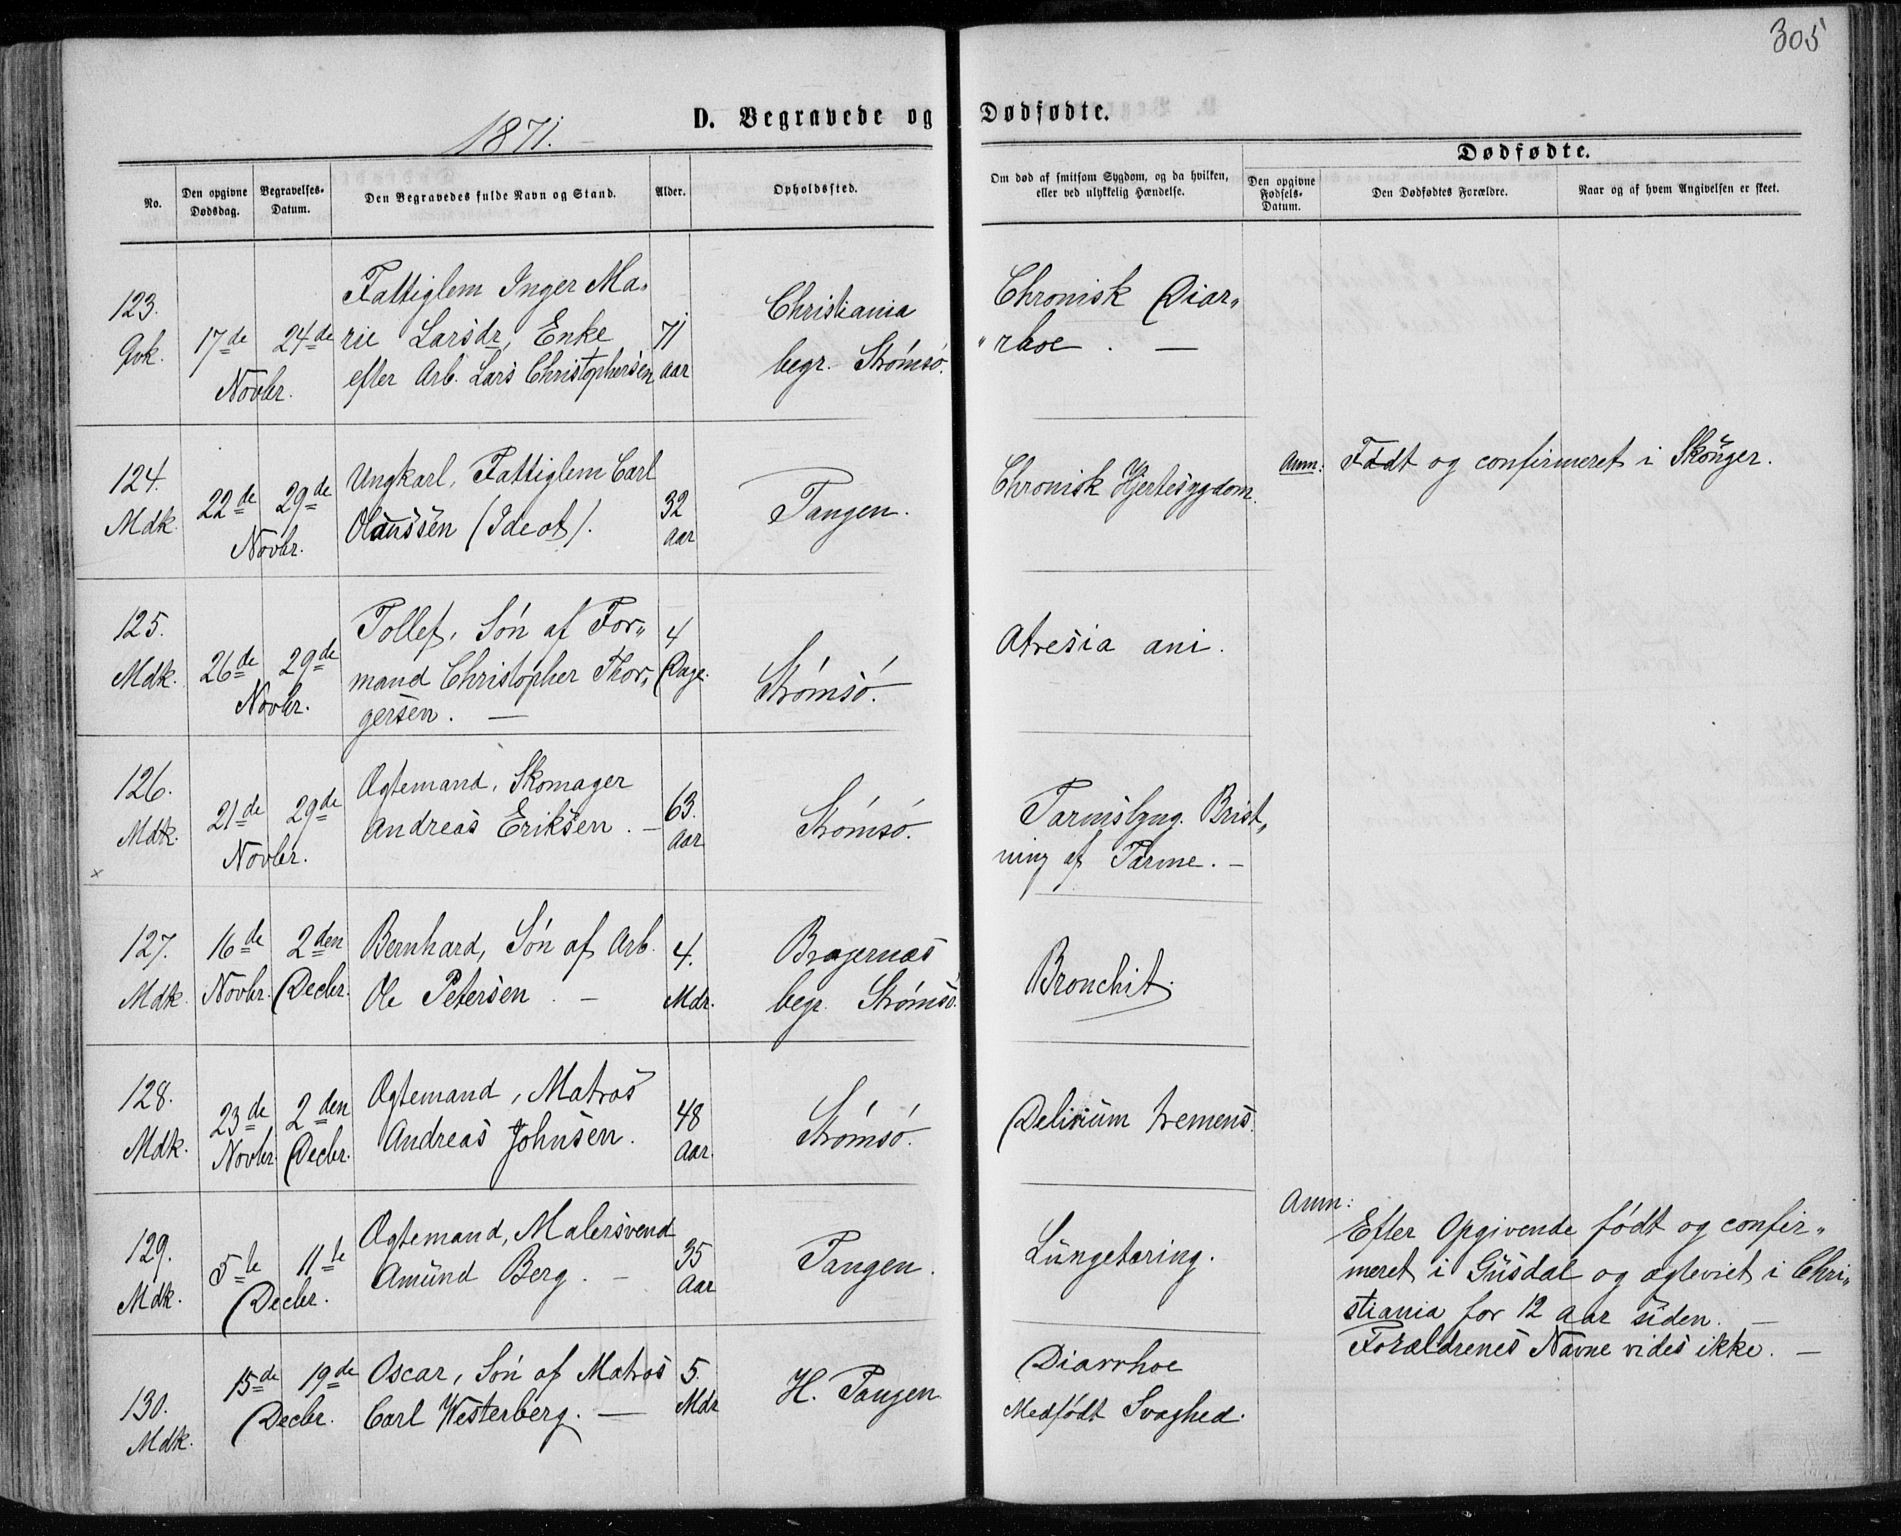 305
1871.
D. Begravede og Dødfødte.
Dødfødte.
No.
Den opgivne Dødsdag.
Begravelses-Datum.
Den Begravedes fulde Navn og Stand.
Alder.
Opholdssted.
Om død af smitsom Sygdom, og da hvilken,
eller ved ulykkelig Hændelse.
Den opgivne Fødsels-Datum.
Den Dødfødtes Forældre.
Naar og af hvem Angivelsen er skeet.
123.
Qvk.
17de 24de
Novbr.
Fattiglem Inger Ma-
rie Larsdr, Enke
efter Arb. Lars Christophersen
71
Aar
Christiania
begr. Strømsø.
Chronisk Diar„
„rhoe. —
124.
Mdk
22de 29de
Novbr.
Ungkarl, Fattiglem Carl
Olaussen (Ideot).
32
Aar
Tangen.
Chronisk Hjertesygdom.
Anm: Født og confirmeret i Skouger.
125.
Mdk.
26de 29de
Novbr.
Tollef, Søn af For„
mand Christopher Thor„
gersen. —
4
Dage.
Strømsø.
Atresia ani.
126.
Mdk.
21de 29de
Novbr.
Ægtemand, Skomager
Andreas Eriksen. —
63.
Aar
Strømsø.
Tarmslyng. Brist„
ning af Tarme. —
x
127.
Mdk.
16de Novbr.
2den Decbr.
Bernhard, Søn af Arb.
Ole Petersen. —
4.
Mdr.
Bragernæs
begr. Strømsø.
Bronchit.
128.
Mdk.
23de Novbr
2den Decbr.
Ægtemand, Matros
Andreas Johnsen.
48
Aar.
Strømsø.
Delirium tremens.
129.
Mdk.
5te 11te
Decbr.
Ægtemand, Malersvend
Amund Berg. —
35
Aar
Tangen.
Lungetæring.
Anm:
Efter Opgivende født og confir„
meret i Gusdal og ægteviet i Chri„
stiania for 12 Aar siden. —
Forældrenes Navne vides ikke. —
130.
Mdk.
15de 19de
Decbr.
Oscar, Søn af Matros
Carl Westerberg. —
5.
Mdr
H. Tangen
Diarrhoe
Medfødt Svaghed.